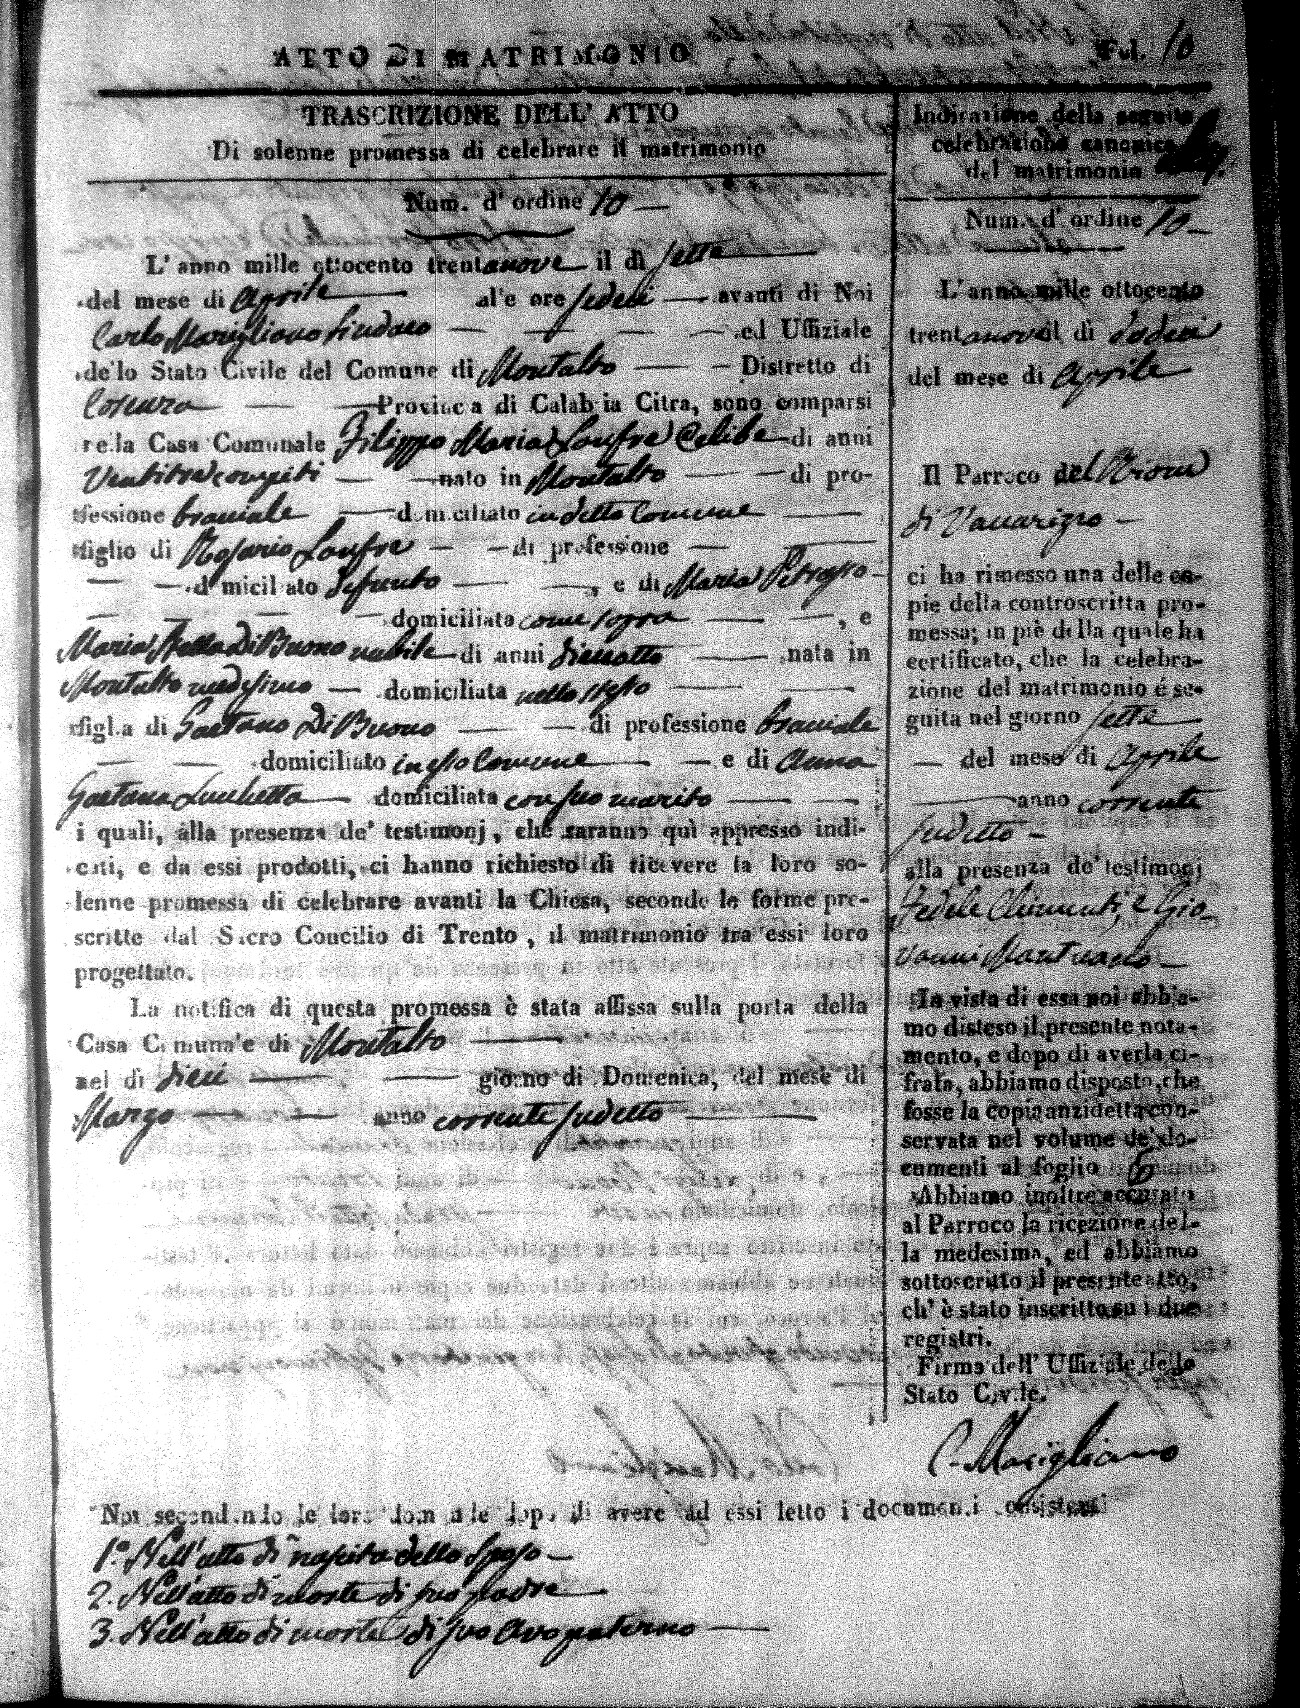 ATTO DI MATRIMONIO
Fol. 10
TRASCRIZIONE DELL' ATTO
Di solenne promessa di celebrare il matrimonio
Num. d'ordine 10
L'anno mille ottocento trentanove il dì sette
del mese di Aprile alle ore sedeci avanti di Noi
Carlo Marigliano Sindaco ed Uffiziale
dello Stato Civile del Comune di Montalto Distretto di
Cosenza Provincia di Calabria Citra, sono comparsi
nella Casa Comunale Filippo Maria Celibe di anni
Ventitre compiti nato in Montalto di pro-
fessione bracciale domiciliato in detto Comune
figlio di Rosario di professione
domiciliato defunto , e di Maria
domiciliata come sopra , e
Maria Stella Di Buono nubile di anni dieciotto nata in
Montalto medesimo domiciliata nello stesso
figlia di Gaetano Di Buono di professione bracciale
domiciliato in esso Comune e di Anna
Gaetana Luchetta domiciliata con suo marito
i quali, alla presenza de' testimonj, che saranno quì appresso indi-
cati, e da essi prodotti, ci hanno richiesto di ricevere la loro so-
lenne promessa di celebrare avanti la Chiesa, secondo le forme pre-
scritte dal Sacro Concilio di Trento, il matrimonio tra essi loro
progettato.
La notifica di questa promessa è stata affissa sulla porta della
Casa Comunale di Montalto
nel dì dieci giorno di Domenica, del mese di
Marzo anno corrente sudetto
Indicazione della seguita
celebrazione canonica
del matrimonio
Num. d'ordine 10
L'anno mille ottocento
trentanove il dì dodeci
del mese di Aprile
Il Parroco del Rione
di Vaccarizzo
ci ha rimesso una delle co-
pie della controscritta pro-
messa; in piè della quale ha
certificato, che la celebra-
zione del matrimonio é se-
guita nel giorno sette
del mese di Aprile
anno corrente
sudetto
alla presenza de' testimonj
Fedele Chimenti, e Gio-
vanni Mantuano
In vista di essa noi abbia-
mo disteso il presente nota-
mento, e dopo di averla ci-
frata, abbiamo disposto, che
fosse la copia anzidetta con-
servata nel volume de' do-
cumenti al foglio 6
Abbiamo inoltre accusato
al Parroco la ricezione del-
la medesima, ed abbiamo
sottoscritto il presente atto,
ch' è stato inscritto su i due
registri.
Firma dell' Uffiziale dello
Stato Civile.
C. Marigliano
Noi secondando le loro domande dopo di avere ad essi letto i documenti consistenti
1.° Nell'atto di nascita dello Sposo
2. Nell'atto di morte di suo padre
3. Nell'atto di morte di suo Avo paterno